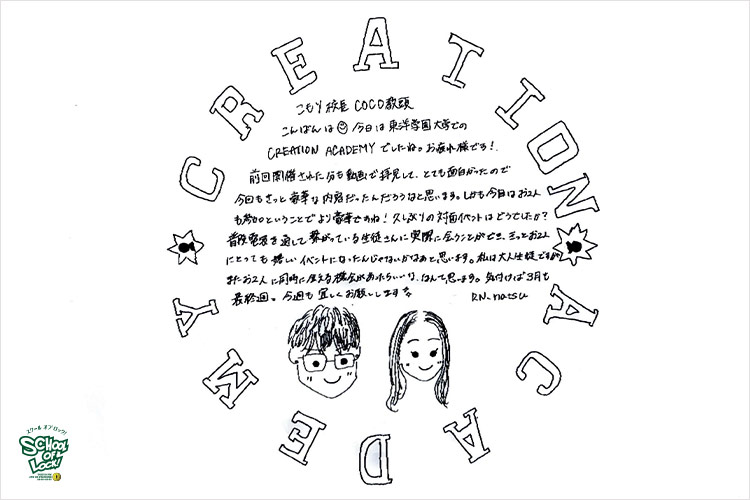 CREATION ACADEMY
こもり校長 COCO教頭
こんばんは 今日は東洋学園大学での
CREATION ACADEMYでしたね。お疲れ様です!
前回開催された分も動画で拝見して、とても面白かったので
今回もきっと豪華な内容だったんだろうなと思います。しかも今日はお2人
も参加ということでより豪華ですね!久しぶりの対面イベントはどうでしたか?
普段電波を通して繋がっている生徒さんに実際に会うことができ、きっとお2人
にとっても嬉しいイベントになったんじゃないかなあと思います。私は大人生徒ですが
またお2人に同時に会える機会があったらいいな、なんて思います。気付けば3月も
最終週。今週も宜しくお願いします
R.N.natsu
スクール オブ ロック!
SCHOOL
OF
LOCK!